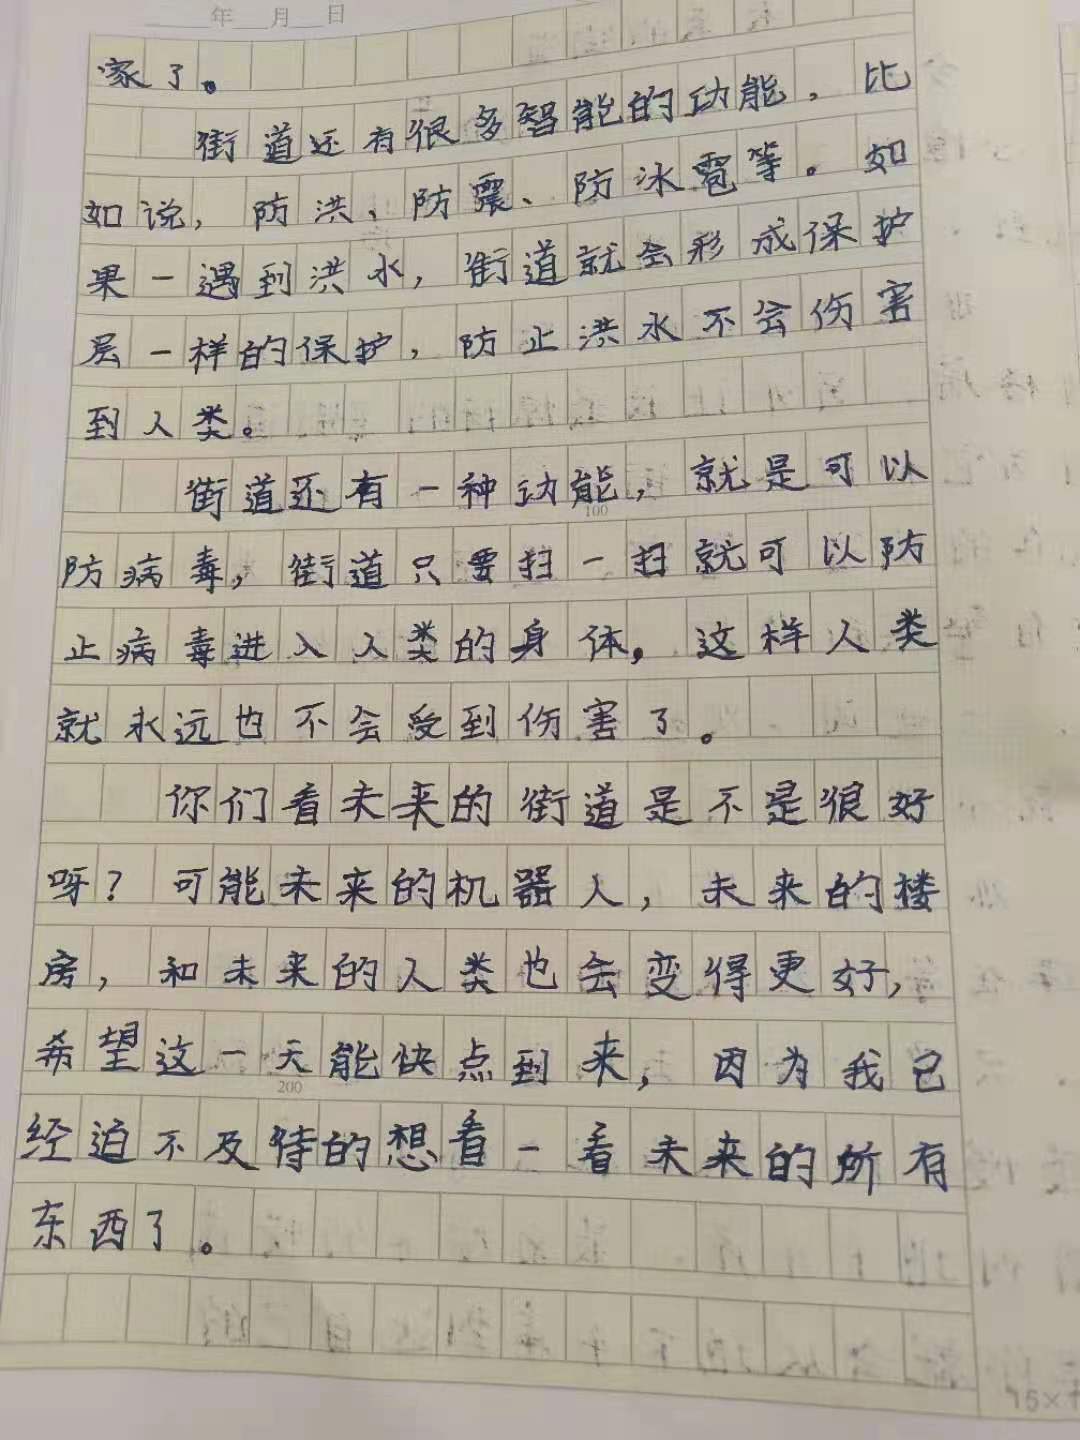 年 月 日
家了。
街道还有很多智能的功能，比
如说，防洪、防震、防冰雹等。如
果一遇到洪水，街道就会形成保护
层一样的保护，防止洪水不会伤害
到人类。
街道还有一种功能，就是可以
100
防病毒，街道只要扫一扫就可以防
止病毒进入人类的身体，这样人类
就永远也不会受到伤害了。
你们看未来的街道是不是很好
呀？可能未来的机器人，未来的楼
房，和未来的人类也会变得更好，
希望这一天能快点到来，因为我已
200
经迫不及待的想看一看未来的所有
东西了。